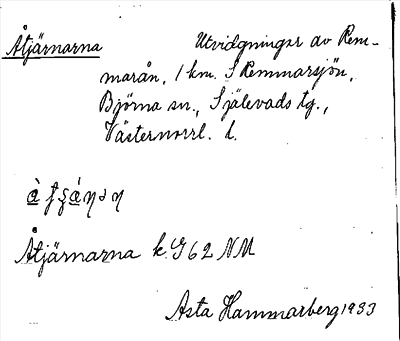 Åtjärnarna Utvidgningar av Rem-
marån, 1 km. S Remmarsjön,
Björna sn., Själevads tg.,
Västernorrl. l.
Åtjärnarna k. G 62 NM
Asta Hammarberg 1933